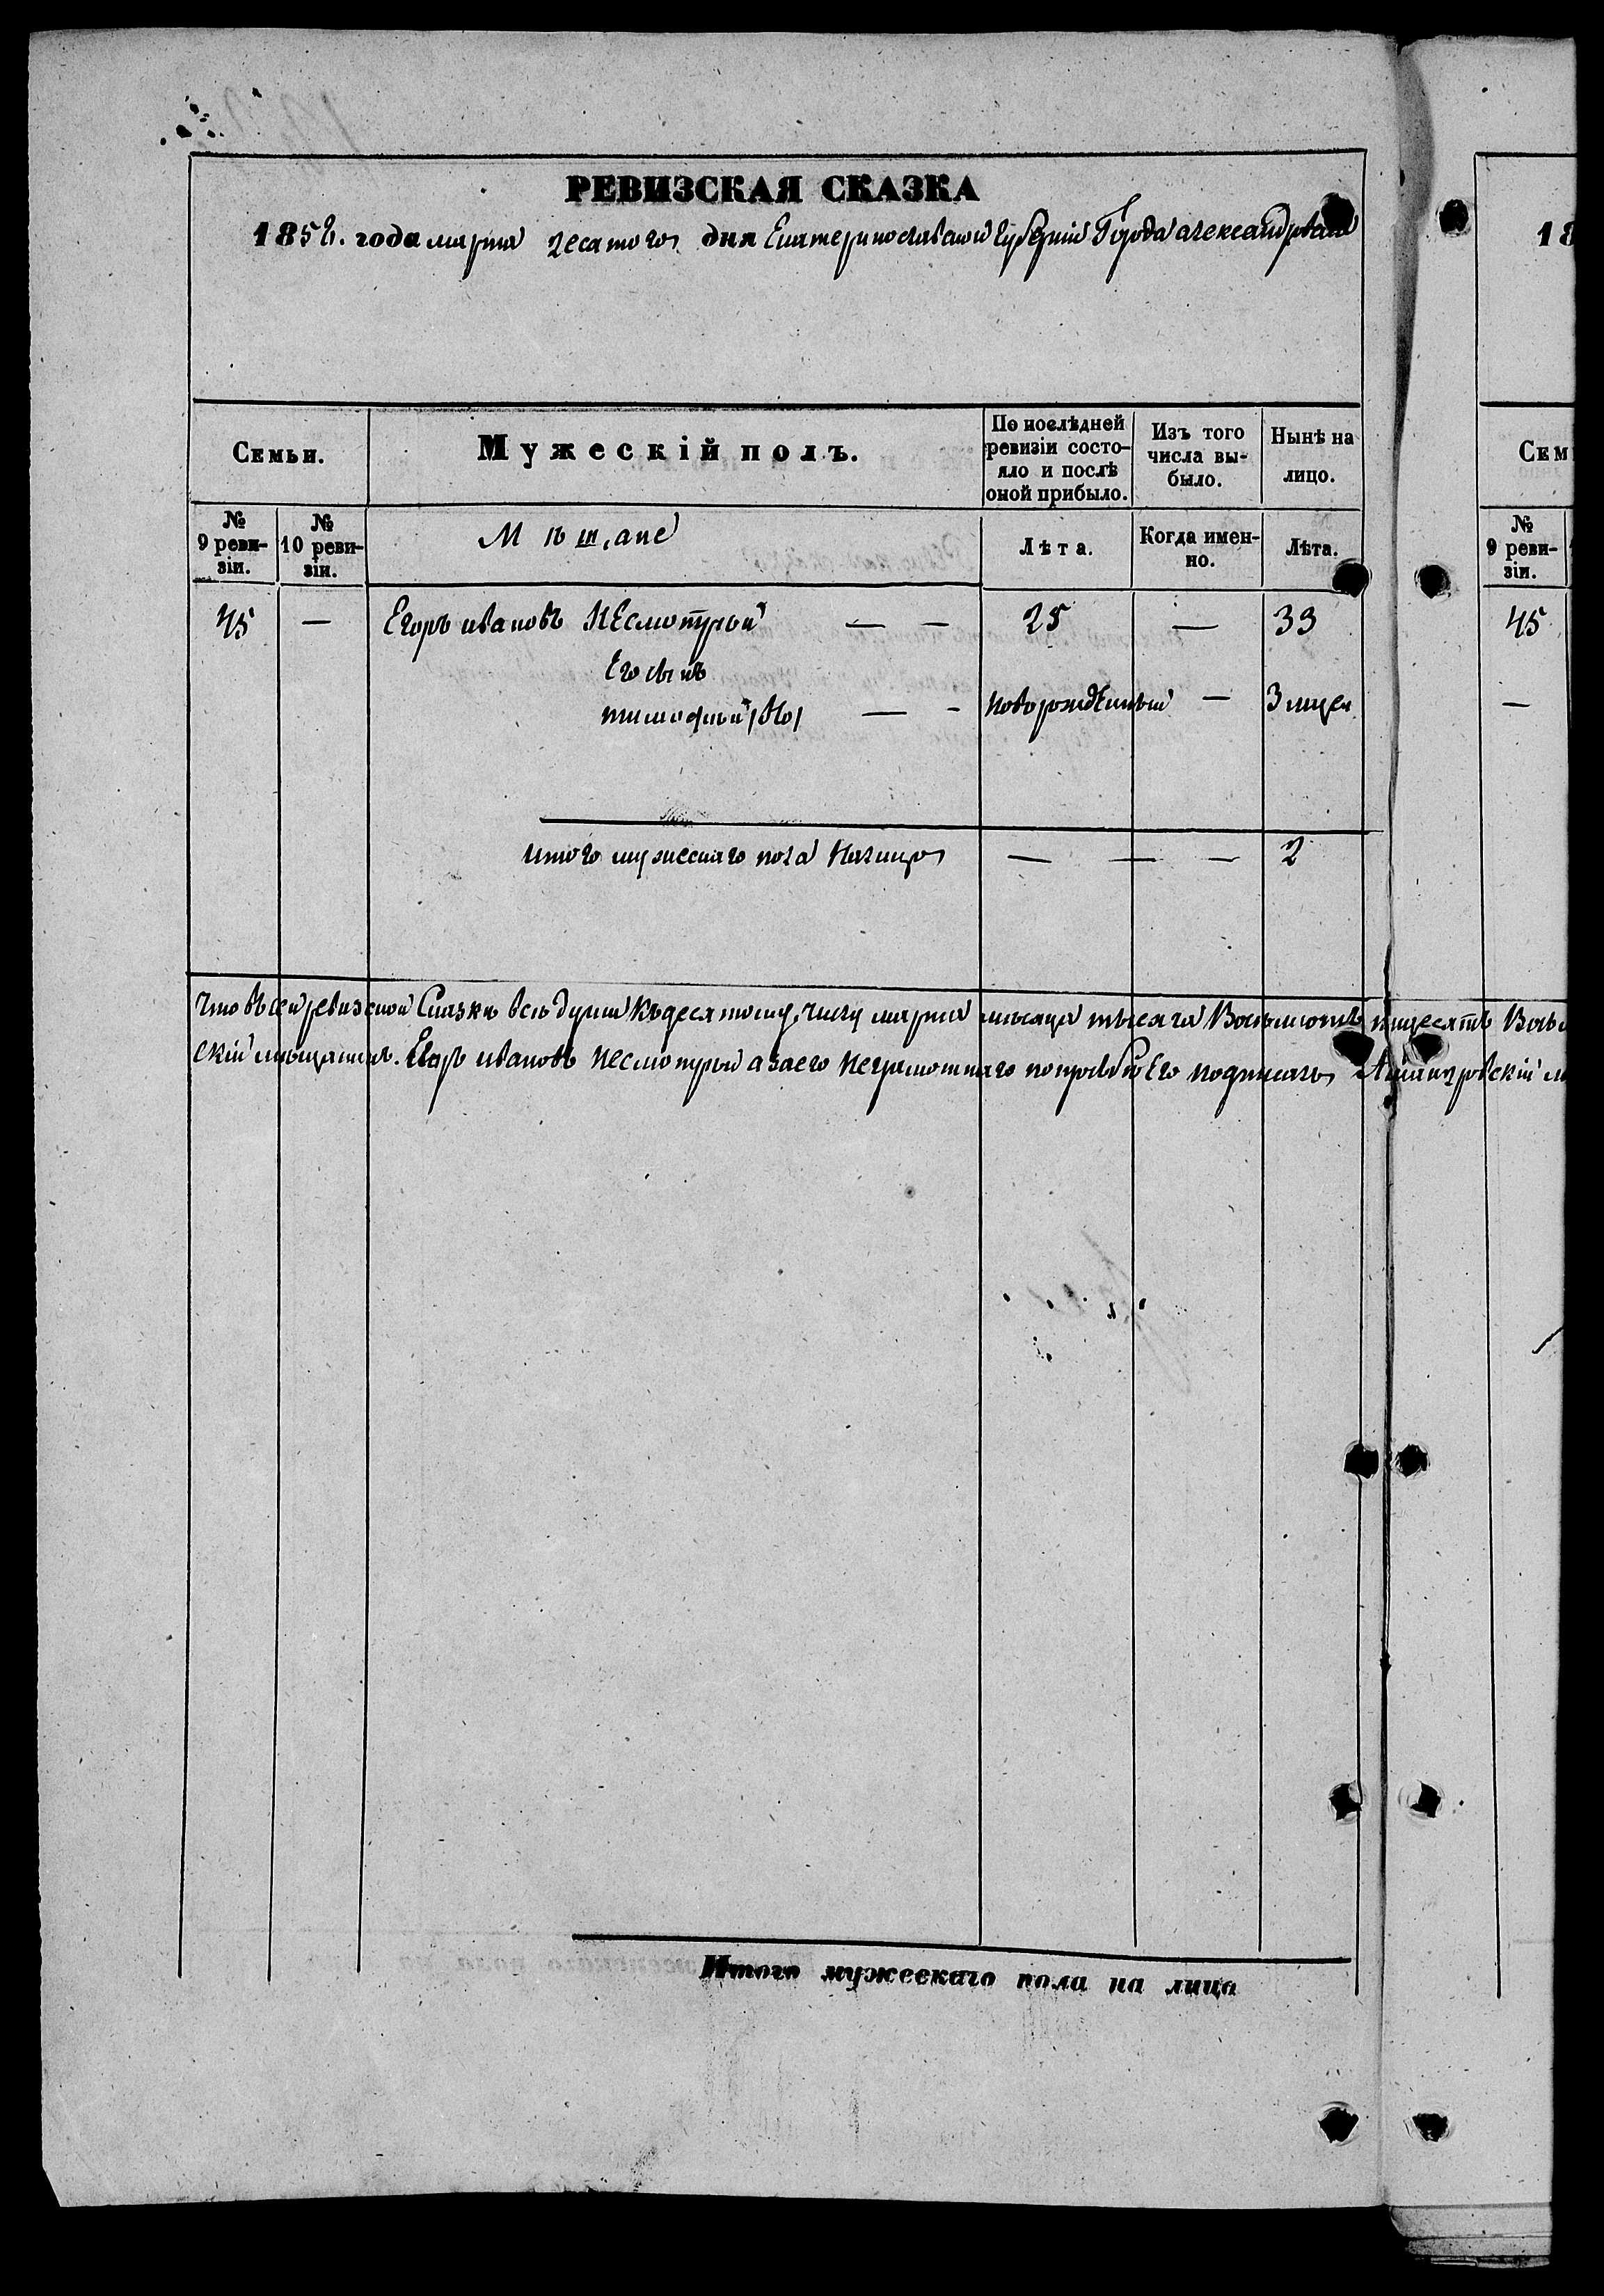 РЕВИЗСКАЯ СКАЗКА
1858. года марта десятого дня Екатеринославской Губернии Города александровска
18
Семьи.
Мужескій полъ.
По послѣдней ревизіи состояло и послѣ оной прибыло.
Изъ того числа выбыло.
Нынѣ на лицо.
Сем
№ 9 ревизіи.
№ 10 ревизіи.
Мѣщане
Лѣта.
Когда именно.
Лѣта.
№ 9 ревизіи.
45 — Егоръ ивановъ НЕсмотрый — — 25 — 33
45
Его сынъ
тимофъй — — новорождЕнный — 3 мцея
—
итого мужескаго пола Налицо — — — 2
Что въ сей ревизской Сказкѣ всѣ души Къ десятому числу марта мѣсяца тысяча Восьмсотъ пидесятъ Вось
скій мѣщанинъ. Егоръ ивановъ несмотрый а за его неграмотнаго по прозбѣ Его подписалъ
Итого мужескаго пола на лицо